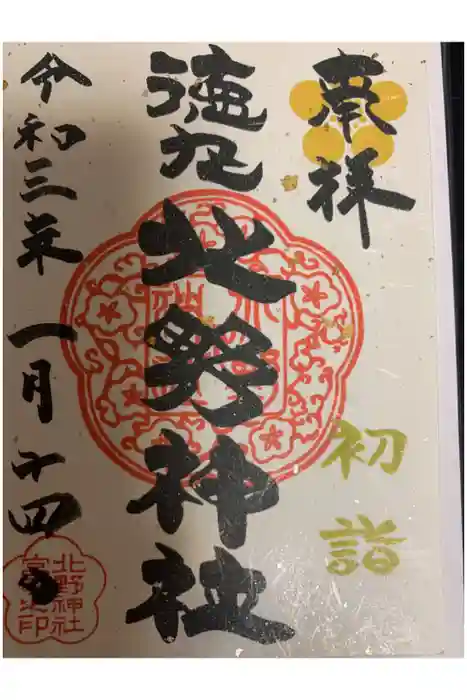 奉拝
初詣
徳丸北野神社
令和三年一月十四日
北野神社
宮司之印